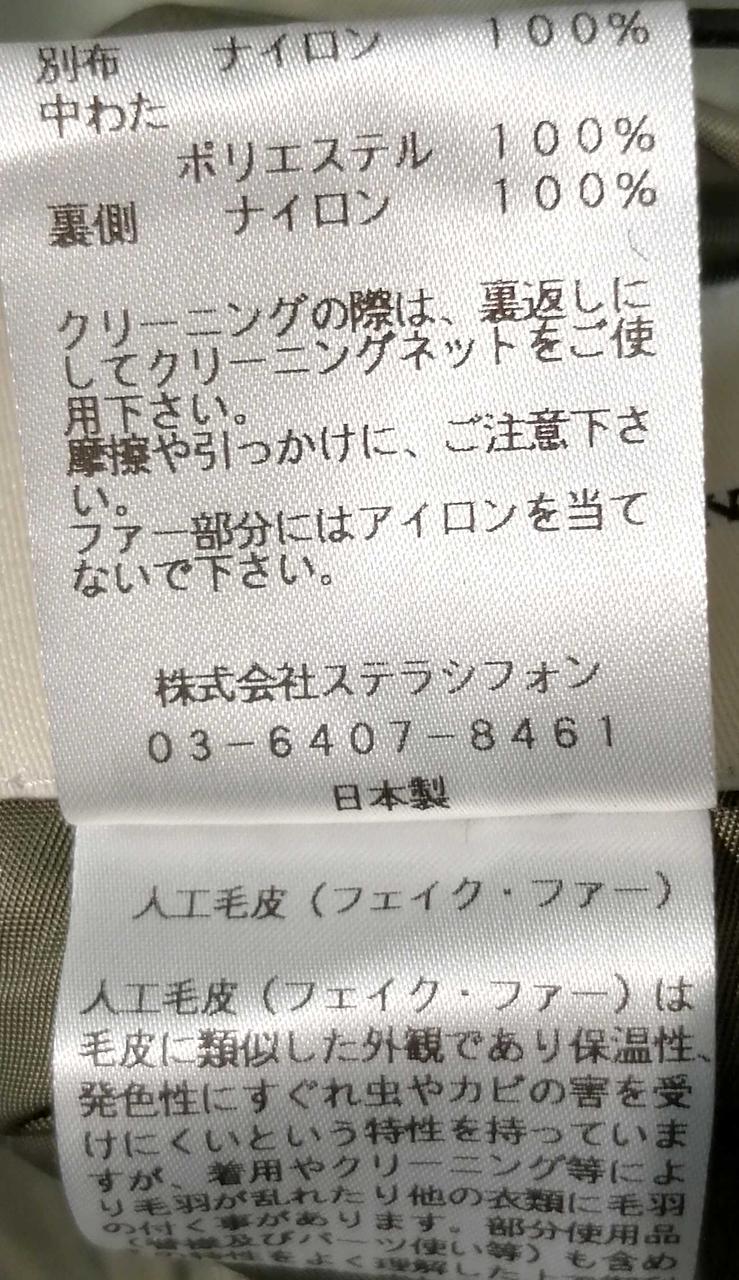 別布 ナイロン 100%
中わた
ポリエステル 100%
裏側 ナイロン 100%
クリーニングの際は、裏返しに
してクリーニングネットをご使
用下さい。
摩擦や引っかけに、ご注意下さ
い。
ファー部分にはアイロンを当て
ないで下さい。
株式会社ステラシフォン
03-6407-8461
日本製
人工毛皮(フェイク・ファー)
人工毛皮(フェイク・ファー)は
毛皮に類似した外観であり保温性、
発色性にすぐれ虫やカビの害を受
けにくいという特性を持っていま
すが、着用やクリーニング等によ
り毛羽が乱れたり他の衣類に毛羽
の付く事があります。部分使用品
及びパーツ使い等)も含め